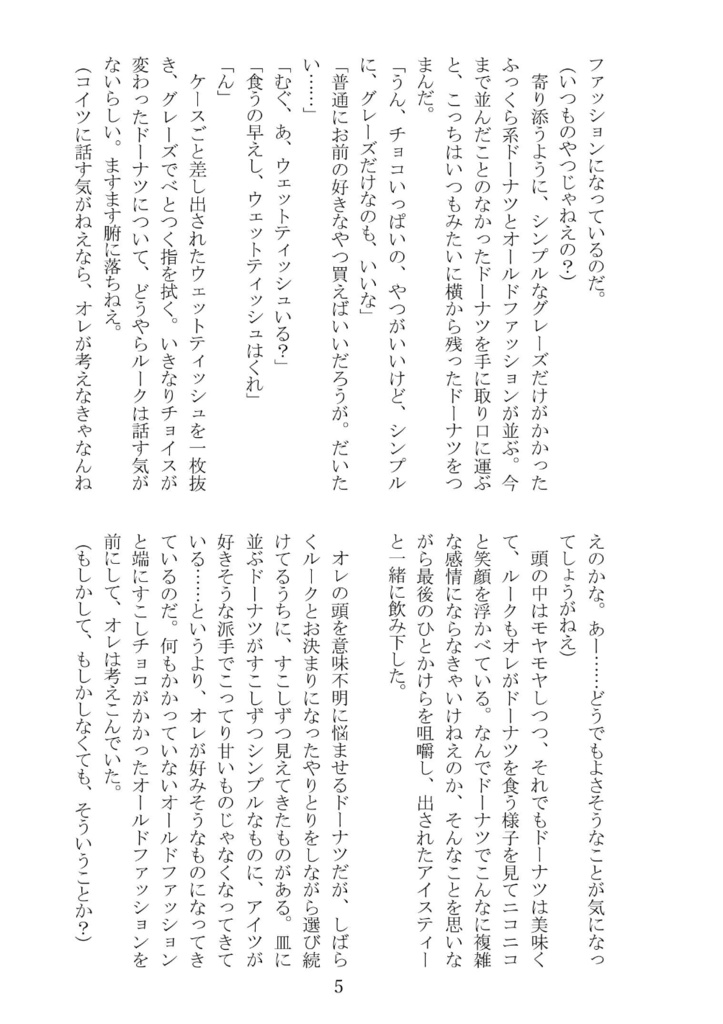 ファッションになっているのだ。
（いつものやつじゃねえの？）
　寄り添うように、シンプルなグレーズだけがかかった
ふっくら系ドーナツとオールドファッションが並ぶ。今
まで並んだことのなかったドーナツを手に取り口に運ぶ
と、こっちはいつもみたいに横から残ったドーナツをつ
まんだ。
「うん、チョコいっぱいの、やつがいいけど、シンプル
に、グレーズだけなのも、いいな」
「普通にお前の好きなやつ買えばいいだろうが。だいた
い……」
「むぐ、あ、ウェットティッシュいる？」
「食うの早えし、ウェットティッシュはくれ」
「ん」
　ケースごと差し出されたウェットティッシュを一枚抜
き、グレーズでべとつく指を拭く。いきなりチョイスが
変わったドーナツについて、どうやらルークは話す気が
ないらしい。ますます腑に落ちねえ。
（コイツに話す気がねえなら、オレが考えなきゃなんね
えのかな。あー……どうでもよさそうなことが気になっ
てしょうがねえ）
　頭の中はモヤモヤしつつ、それでもドーナツは美味く
て、ルークもオレがドーナツを食う様子を見てニコニコ
と笑顔を浮かべている。なんでドーナツでこんなに複雑
な感情にならなきゃいけねえのか、そんなことを思いな
がら最後のひとかけらを咀嚼し、出されたアイスティー
と一緒に飲み下した。
　オレの頭を意味不明に悩ませるドーナツだが、しばら
くルークとお決まりになったやりとりをしながら選び続
けてるうちに、すこしずつ見えてきたものがある。皿に
並ぶドーナツがすこしずつシンプルなものに、アイツが
好きそうな派手でこってり甘いものじゃなくなってきて
いる……というより、オレが好みそうなものになってき
ているのだ。何もかかっていないオールドファッション
と端にすこしチョコがかかったオールドファッションを
前にして、オレは考えこんでいた。
（もしかして、もしかしなくても、そういうことか？）
5